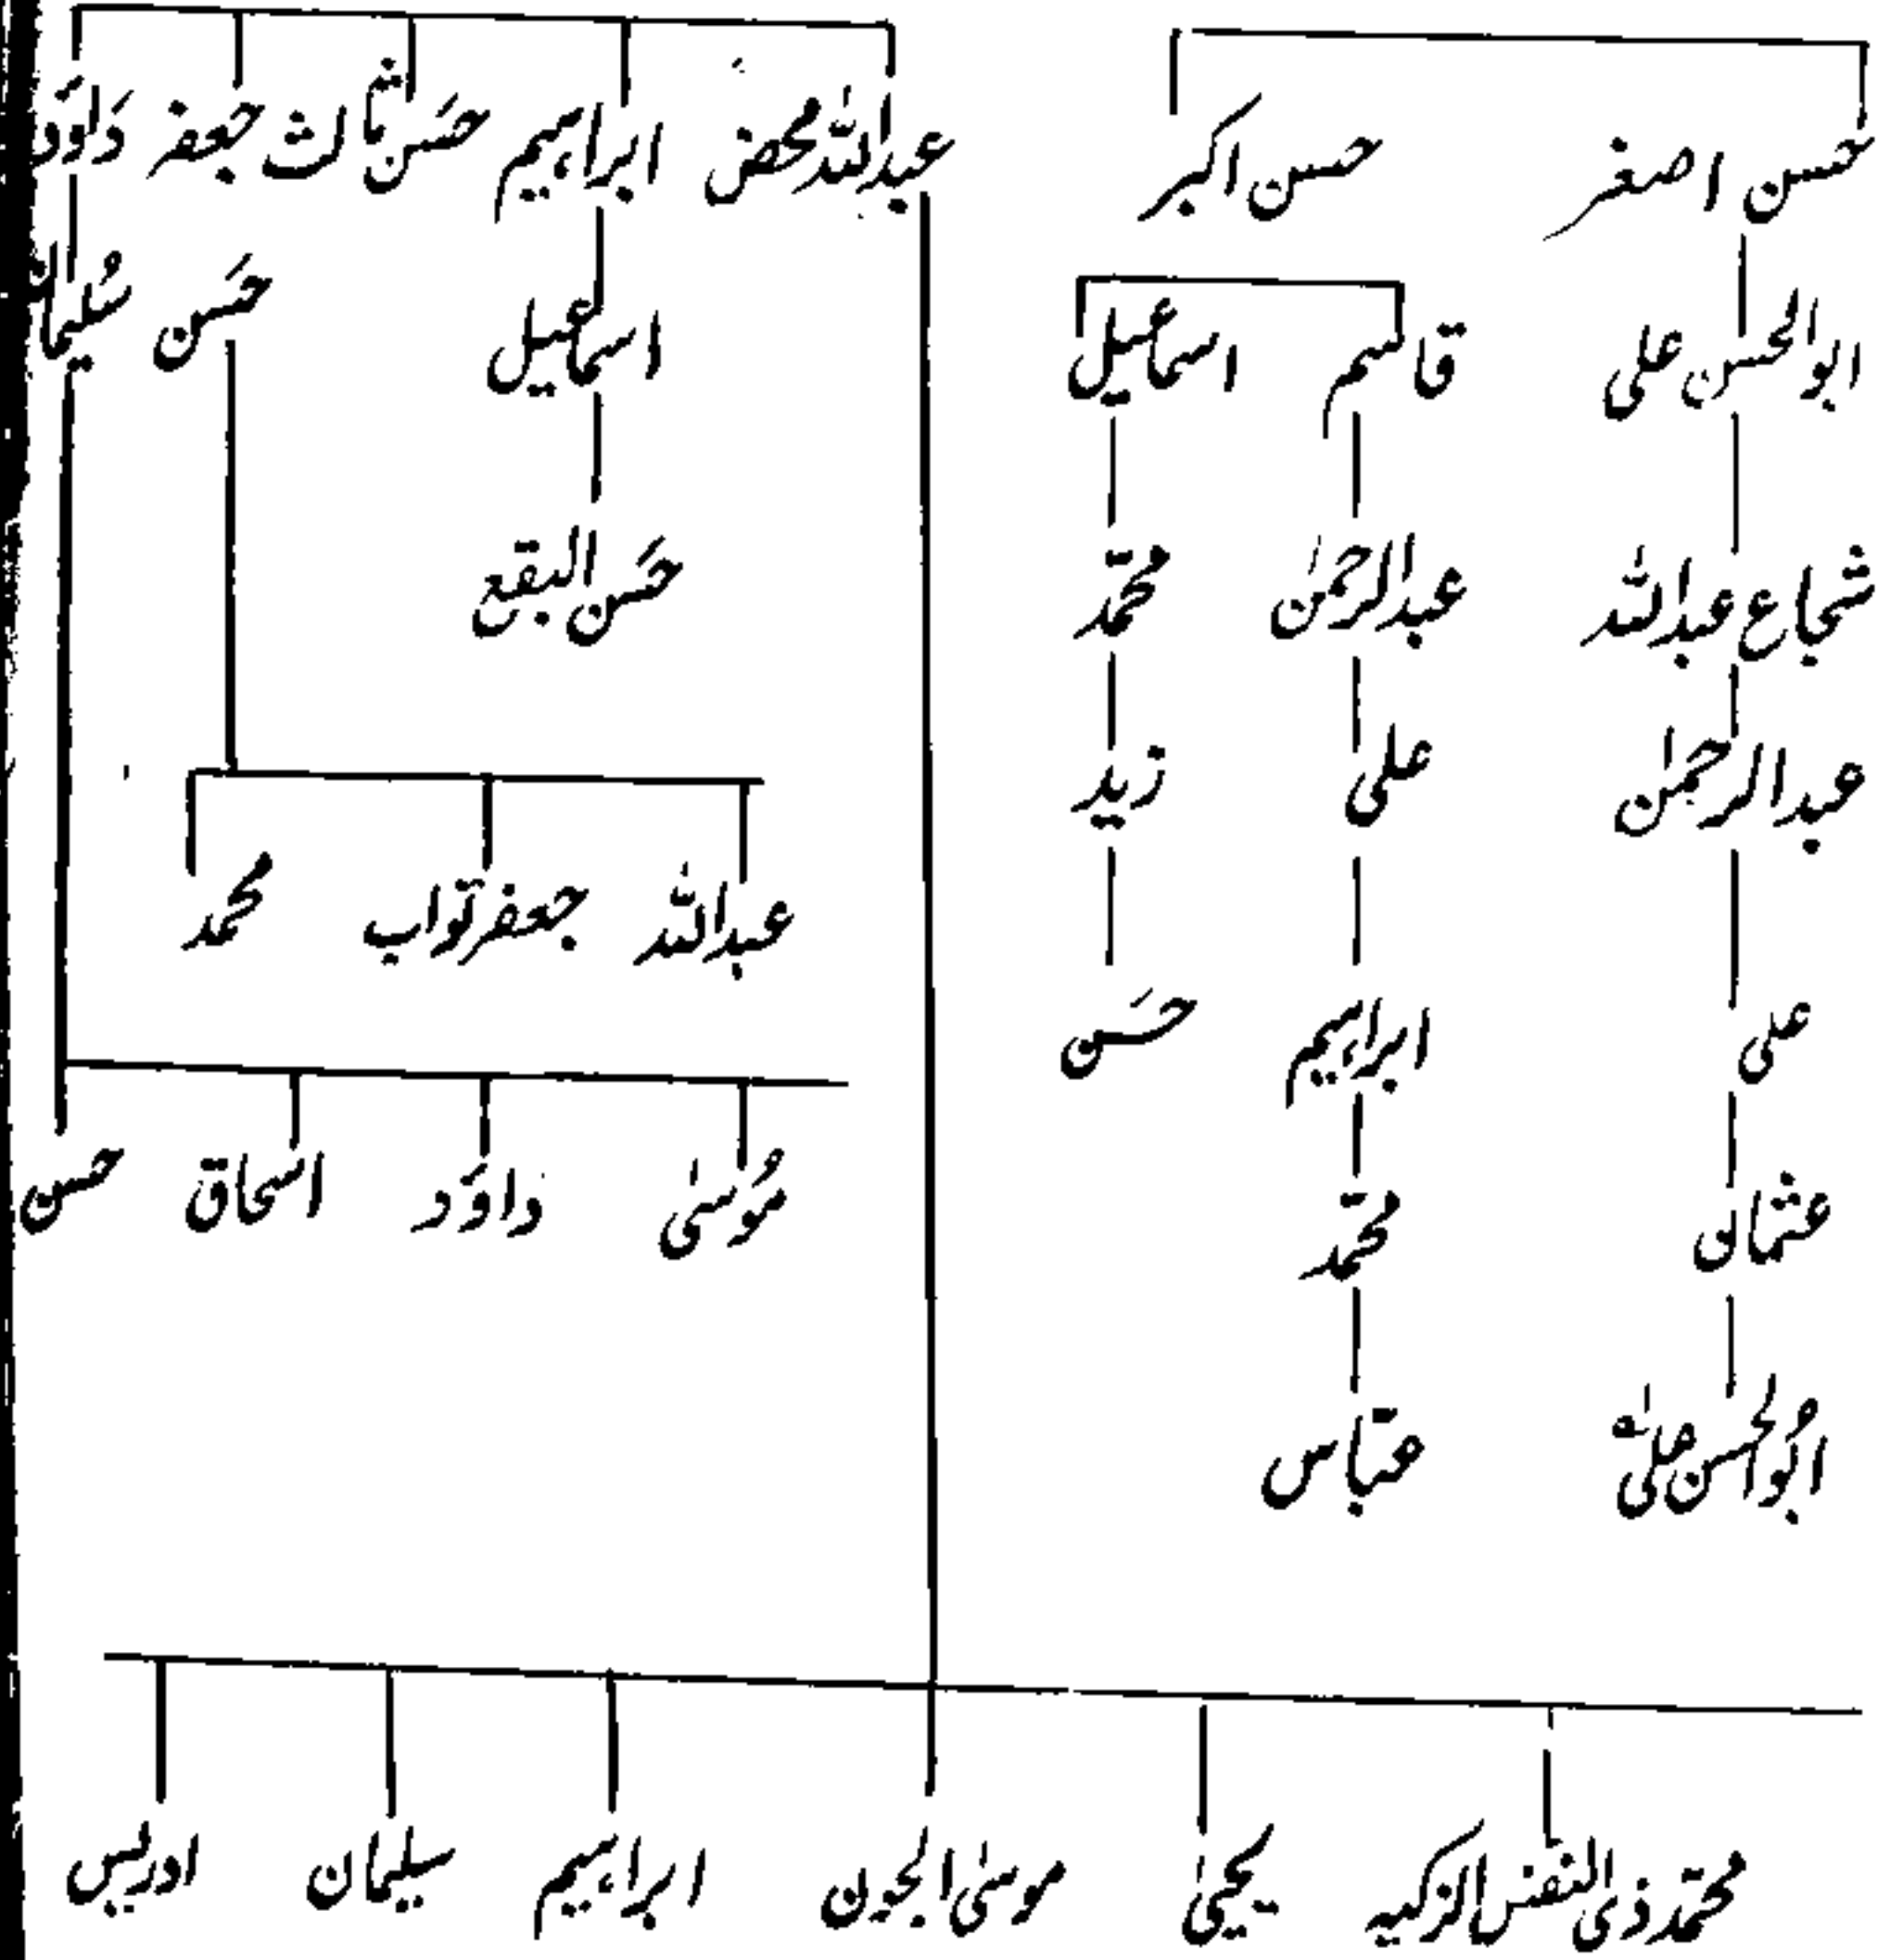 حسن اصغر حسن اکبر عبداللہ محض ابراہیم حسن ثالث جعفر داؤد
ابوالحسن علی قاسم اسماعیل اسماعیل حسن سلیمان
شجاع عبداللہ عبدالرحمٰن محمد حسن البقیع
عبدالرحمٰن علی زید
عبداللہ جعفر تواب محمد
علی ابراہیم حسن
عثمان محمد موسیٰ داؤد اسحاق حسن
ابوالحسن علی عباس
محمد ذی النفس الزکیہ یحییٰ موسیٰ الجون ابراہیم سلیمان ادریس